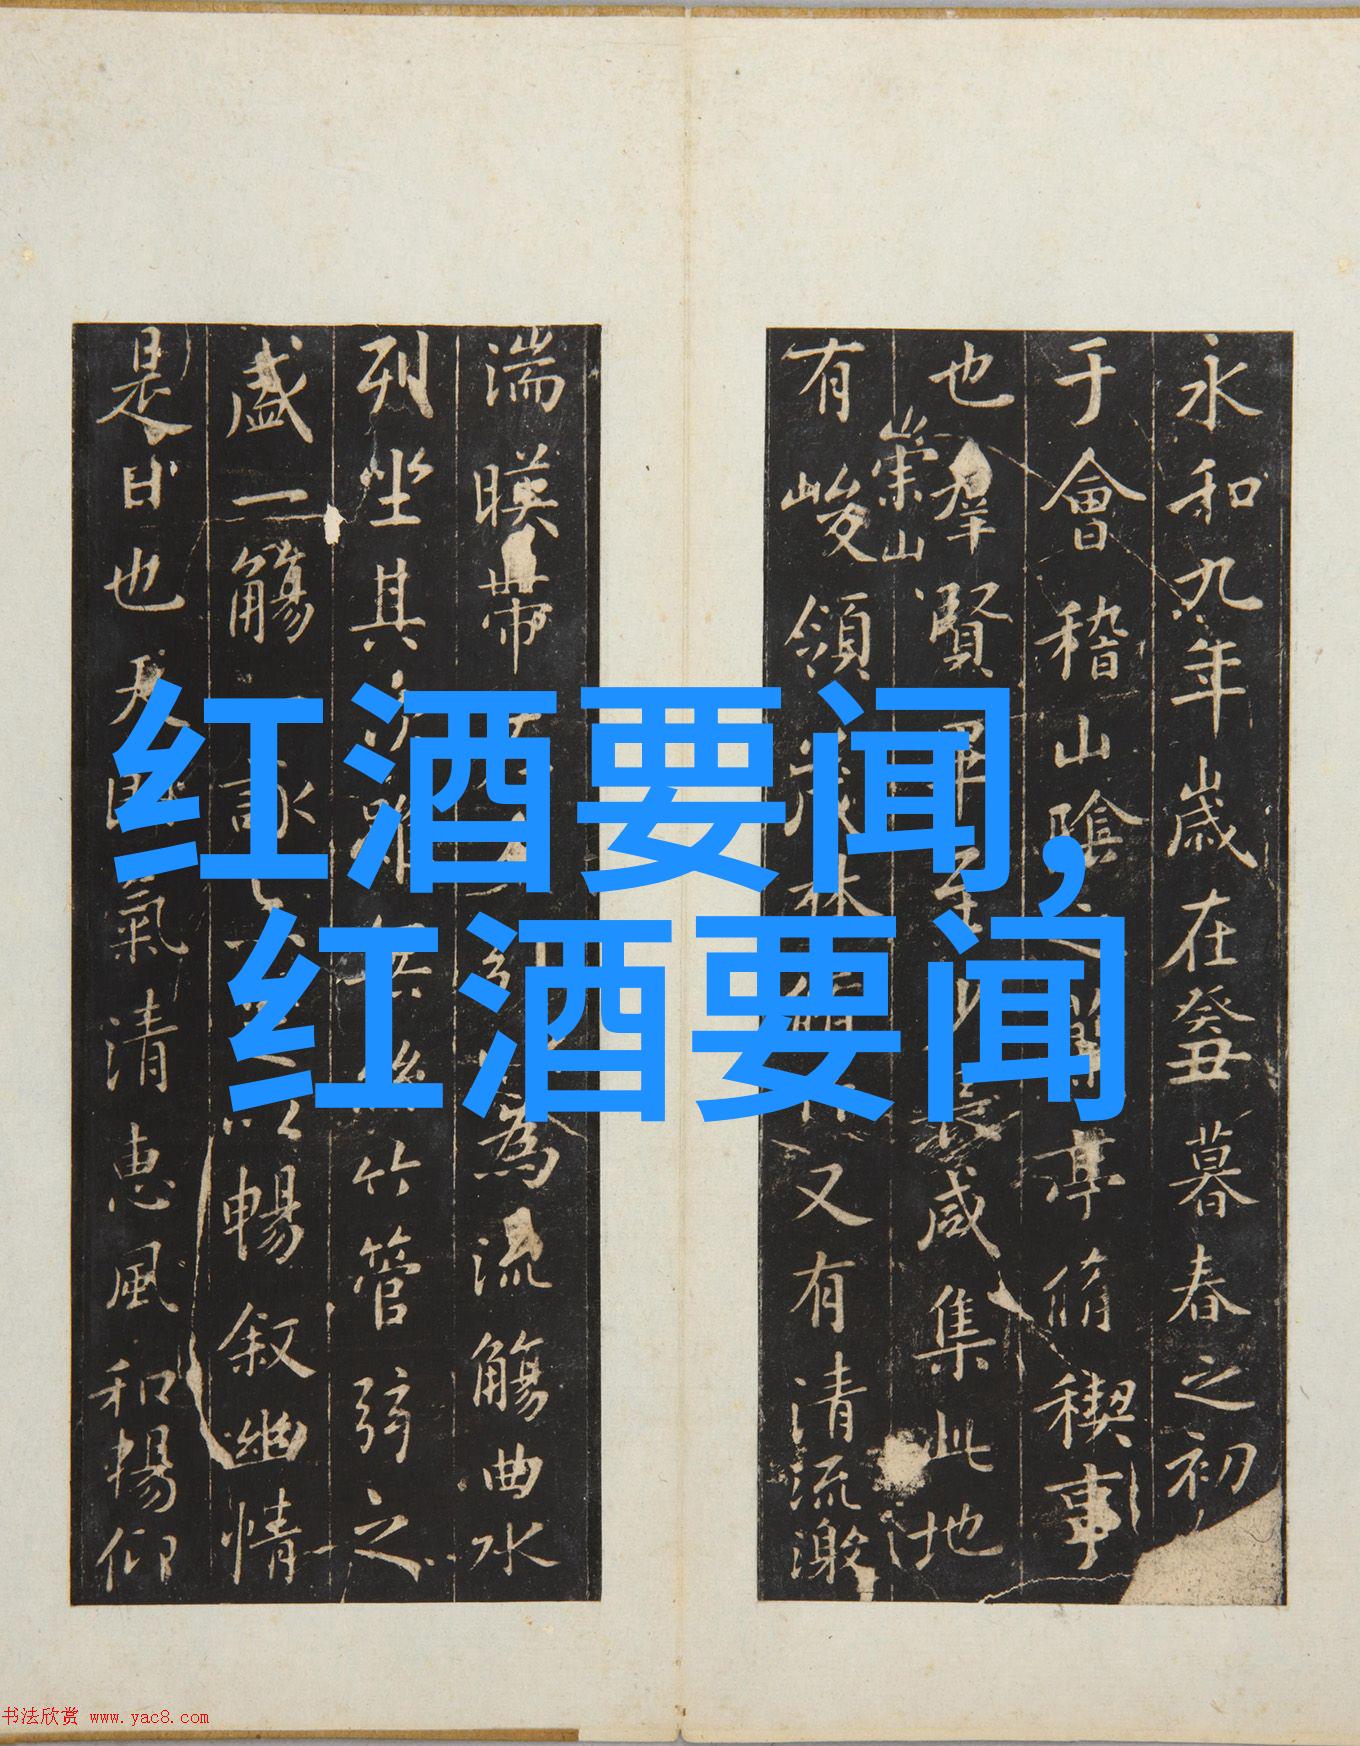 红酒要闻,
红酒要闻
永和九年歲在癸丑暮春之初
于會稽山陰之蘭亭脩禊事
也羣賢畢至少長咸集此地
崇山
有峻領茂林脩竹又有清流激
湍暎帶左右引以為流觴曲水
列坐其次雖無絲竹管弦之
盛一觴一詠亦足以暢叙幽情
是日也天朗氣清惠風和暢仰
书法欣赏 www.yac8.com